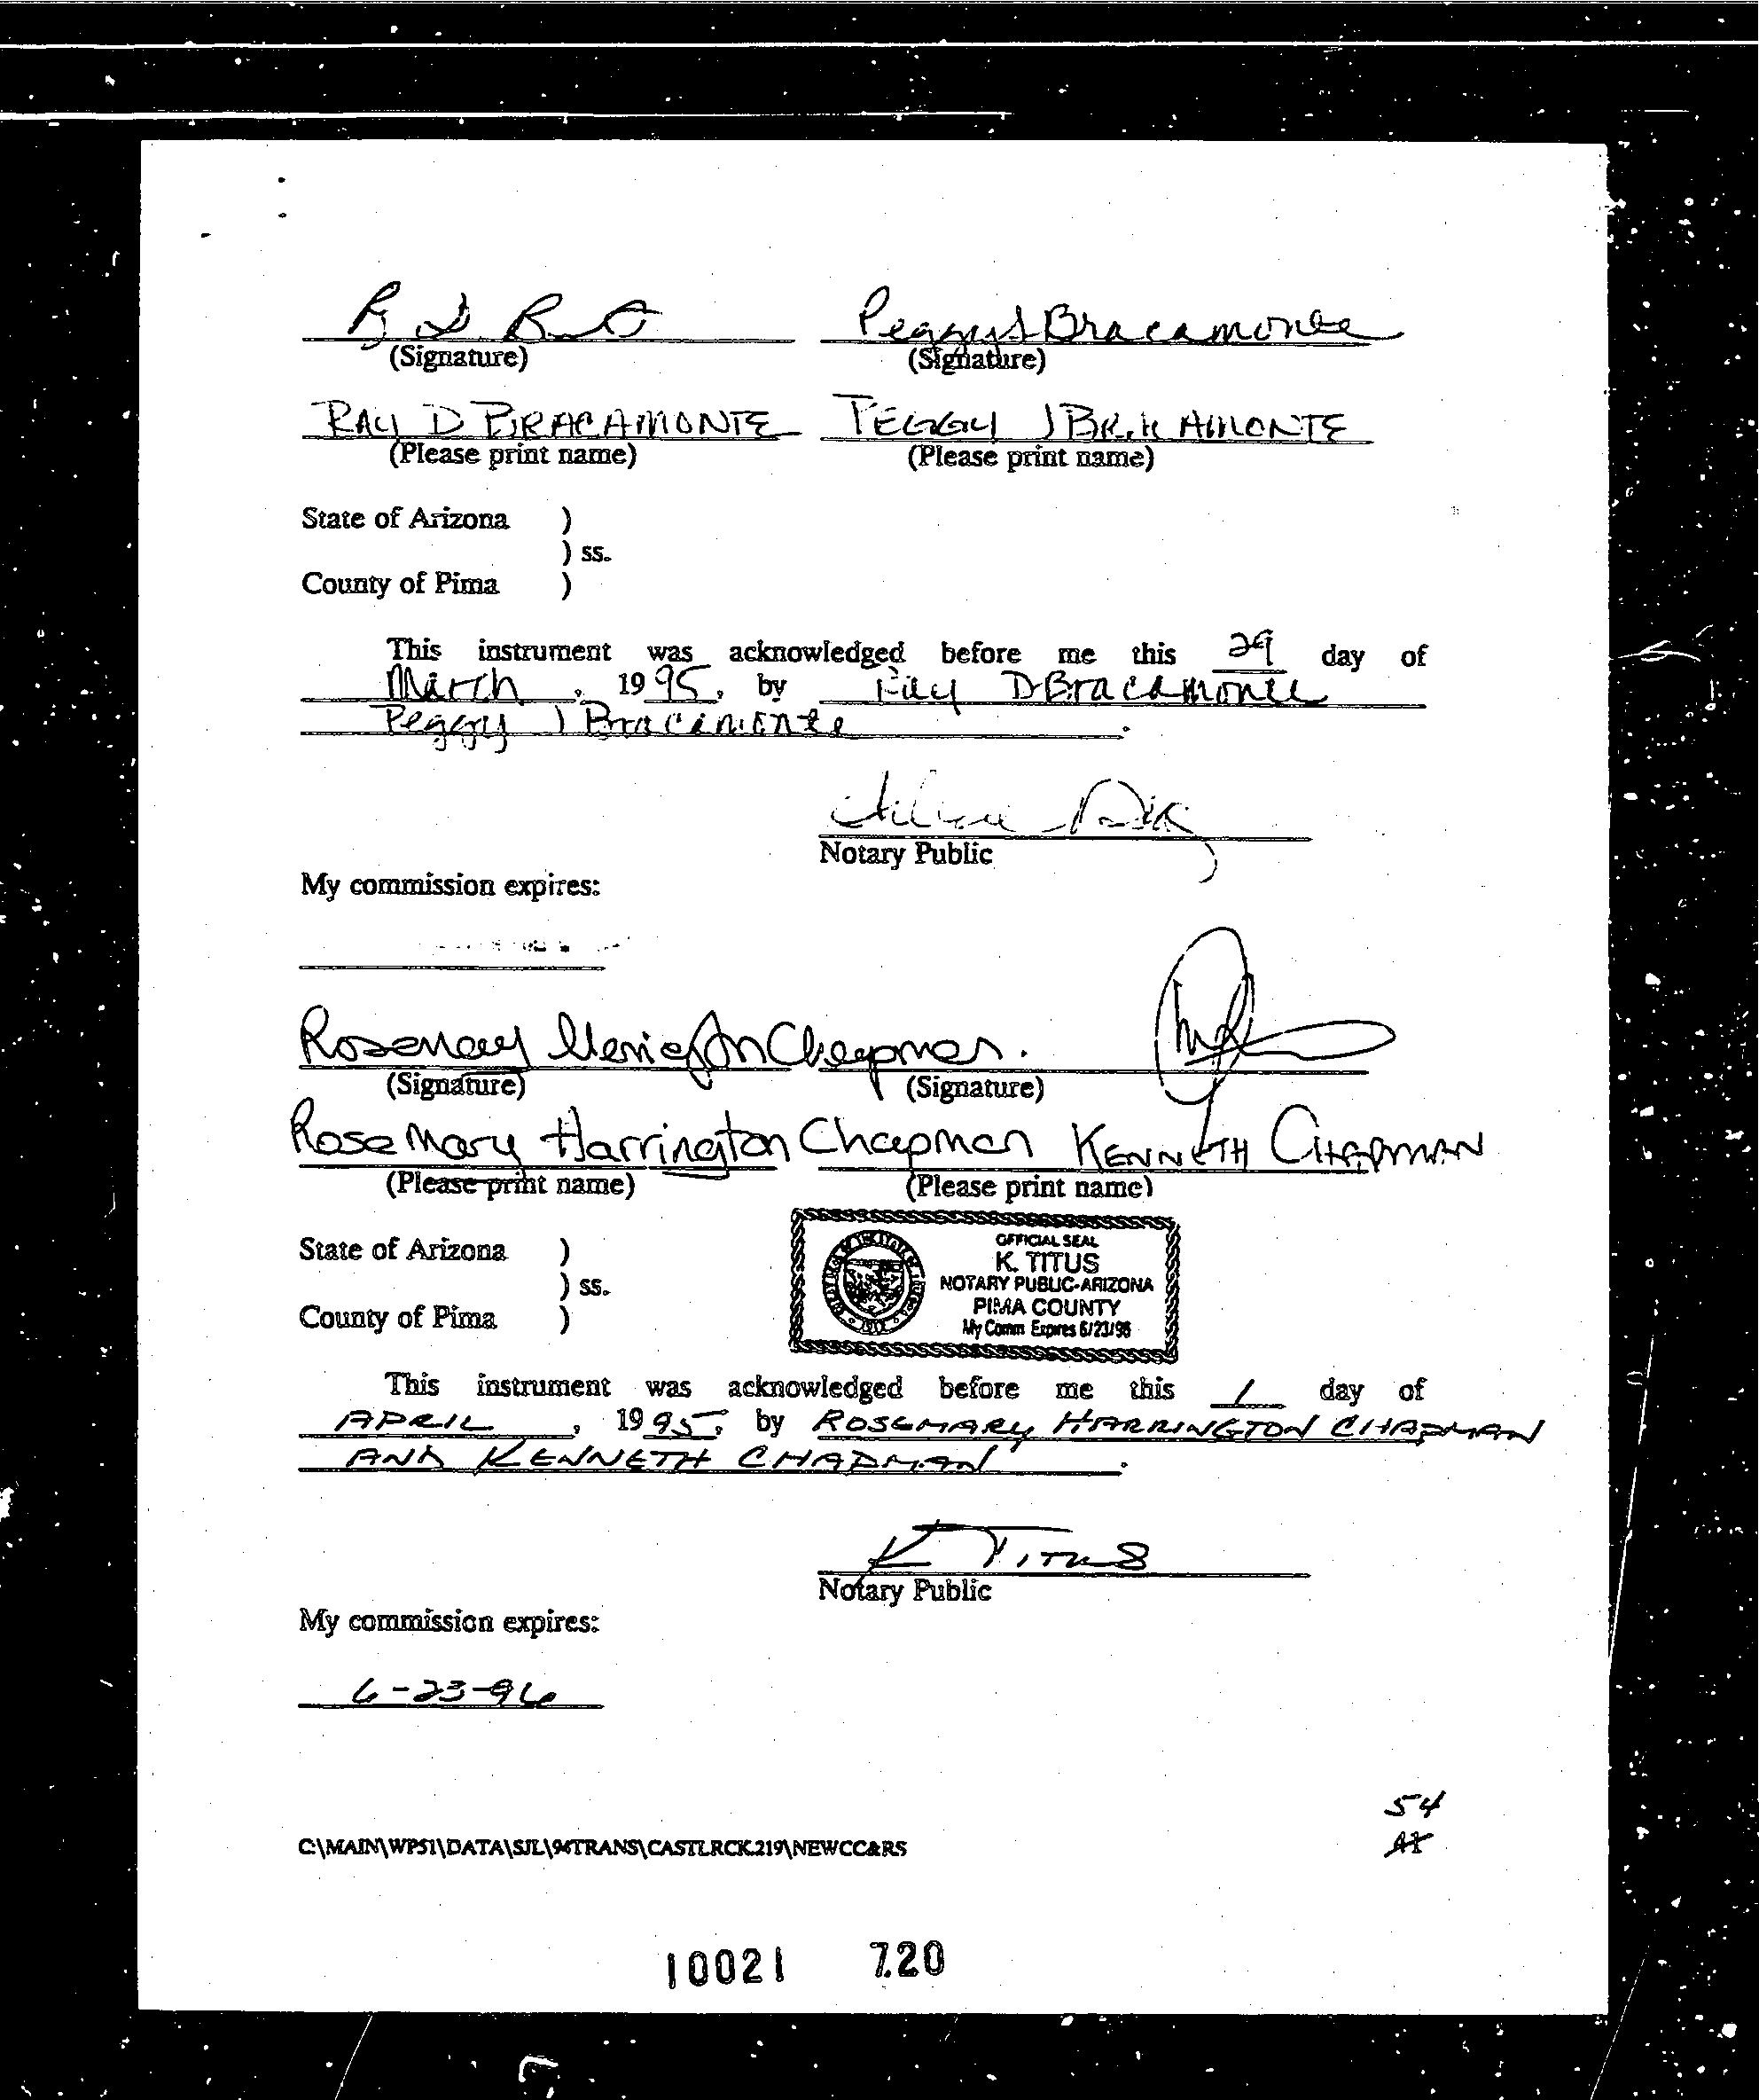 Peggy J Bracamonte
(Signature) (Signature)
RAY D BRACAMONTE PEGGY J BRACAMONTE
(Please print name) (Please print name)
State of Arizona )
) ss.
County of Pima )
This instrument was acknowledged before me this 29 day of
March, 1995, by Ray D Bracamonte
Peggy J Bracamonte.
Notary Public
My commission expires:
Rosemary Harrington Chapman.
(Signature) (Signature)
Rosemary Harrington Chapman KENNETH CHAPMAN
(Please print name) (Please print name)
OFFICIAL SEAL
K. TITUS
NOTARY PUBLIC-ARIZONA
PIMA COUNTY
My Comm Expires 6/23/96
State of Arizona )
) ss.
County of Pima )
This instrument was acknowledged before me this 1 day of
APRIL, 1995, by ROSEMARY HARRINGTON CHAPMAN
AND KENNETH CHAPMAN.
K TITUS
Notary Public
My commission expires:
6-23-96
54
C:\MAIN\WP51\DATA\SJL\94TRANS\CASTLRCK.219\NEWCC&RS
10021 720